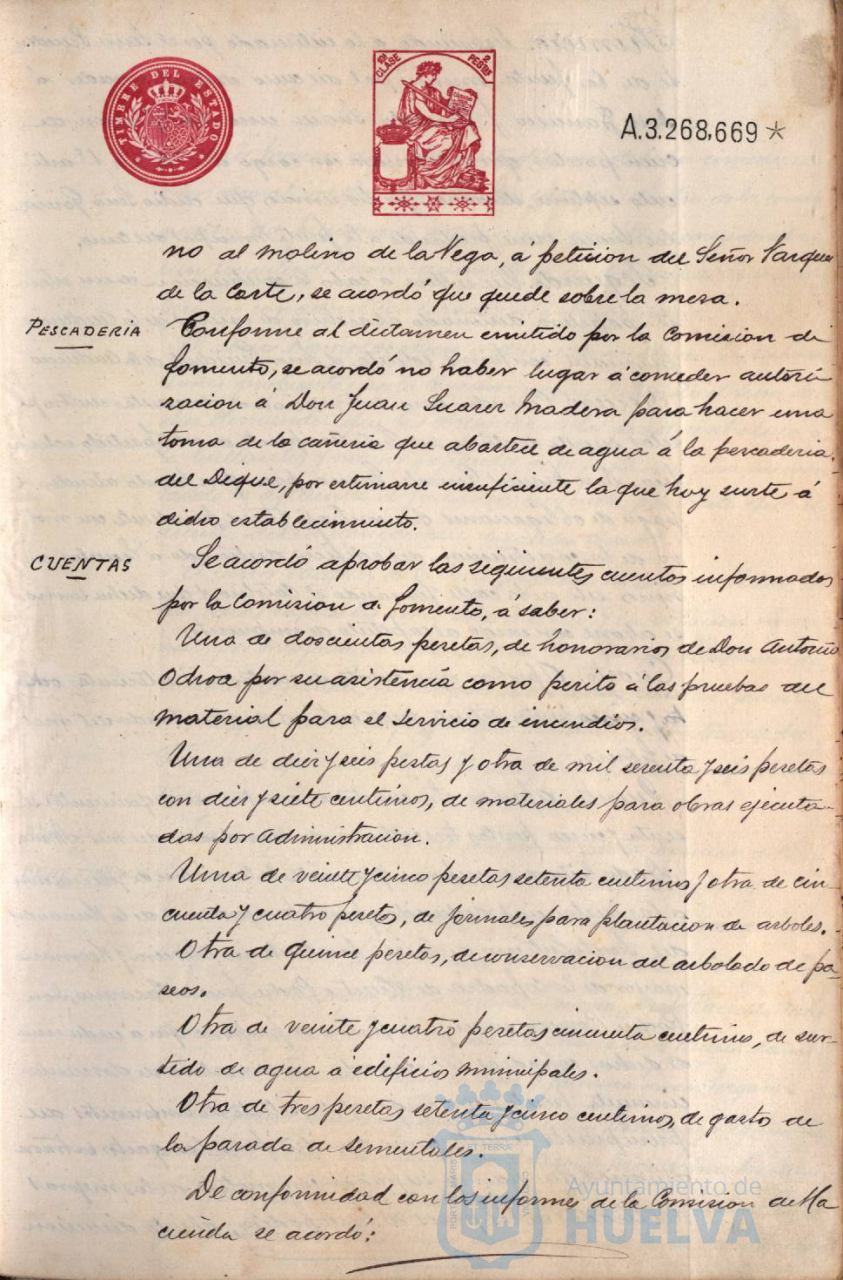 TIMBRE DEL ESTADO
10ª CLASE
2 PESETAS
A.3.268,669*
no al molino de la Vega, á peticion del Señor Vazquez
de la Corte, se acordó que quede sobre la mesa.
PESCADERIA
Conforme al dictamen emitido por la Comision de
fomento, se acordó no haber lugar á conceder autori
zacion á Don Juan Suarez Madera para hacer una
toma de la cañeria que abastece de agua á la pescaderia
del Dique, por estimarse insuficiente la que hoy surte á
dicho establecimiento.
CUENTAS
Se acordó aprobar las siguientes cuentas informadas
por la Comision de fomento, á saber:
Una de doscientas pesetas, de honorarios de Don Antonio
Ochoa por su asistencia como perito á las pruebas del
material para el servicio de incendios.
Una de diez y seis pestas y otra de mil sesenta y seis pesetas
con diez y siete centimos, de materiales para obras ejecuta-
das por administracion.
Una de veinte y cinco pesetas setenta centimos y otra de cin
cuenta y cuatro pesetas, de jornales para plantacion de arboles.
Otra de quince pesetas, de conservacion del arbolado de pa-
seos.
Otra de veinte y cuatro pesetas cincuenta centimos, de sur-
tido de agua á edificios municipales.
Otra de tres pesetas setenta y cinco centimos, de gasto de
la parada de sementales.
De conformidad con los informes de la Comision de Ha
cienda se acordó:
Ayuntamiento de
HUELVA